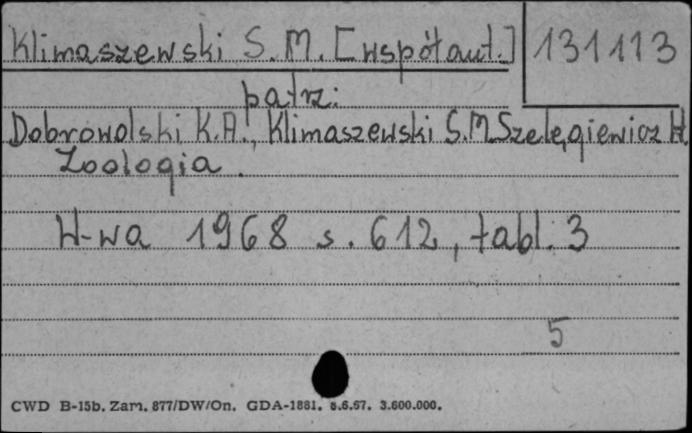 Klimaszewski S. M. [współaut.] 131113
patrz:
Dobrowolski K.A., Klimaszewski S.M. Szelęgiewicz H.
Zoologia.
W-wa 1968 s. 612, tabl. 3
5
CWD B-15b. Zam. 877/DW/On. GDA-1881. 8.6.67. 3.600.000.